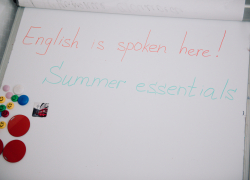 English is spoken here!
Summer essentials